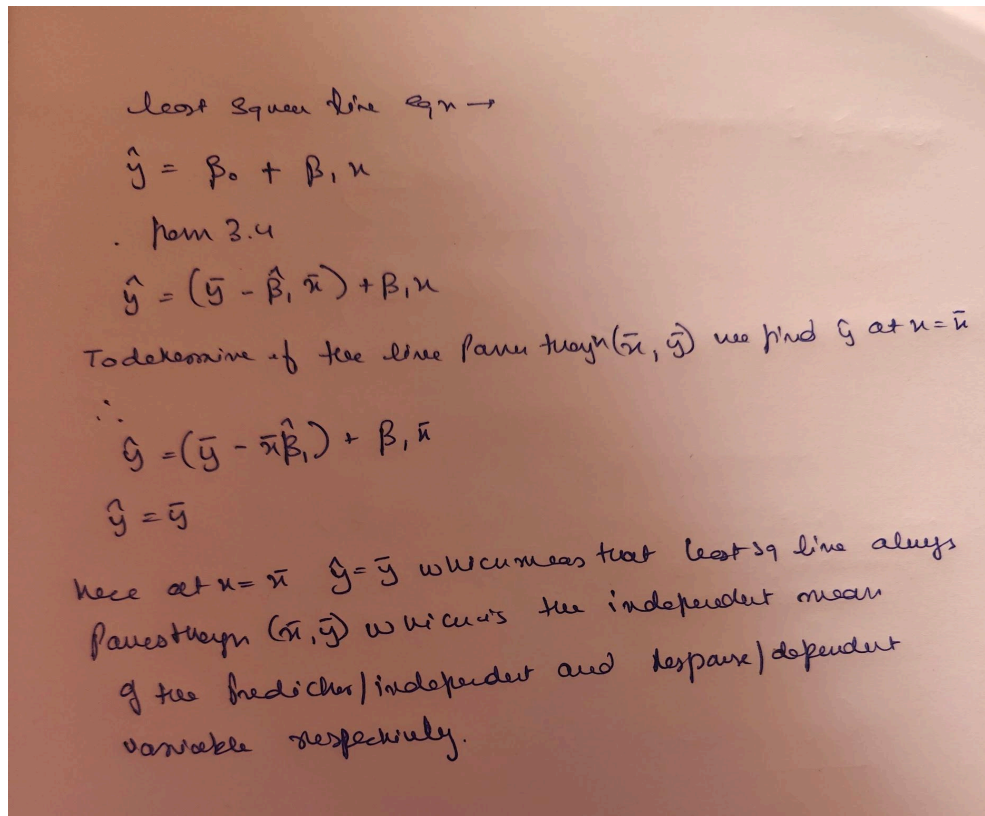 least square line eqn →
ŷ = β₀ + β₁x
. from 3.4
ŷ = (ȳ - β̂₁ x̄) + β₁x
To determine if the line passes through (x̄, ȳ) we find ŷ at x = x̄
∴
ŷ = (ȳ - x̄β̂₁) + β₁x̄
ŷ = ȳ
here at x = x̄ ŷ = ȳ which means that least sq line always
passes through (x̄, ȳ) which is the independent mean
of the predictor/independent and response/dependent
variable respectively.